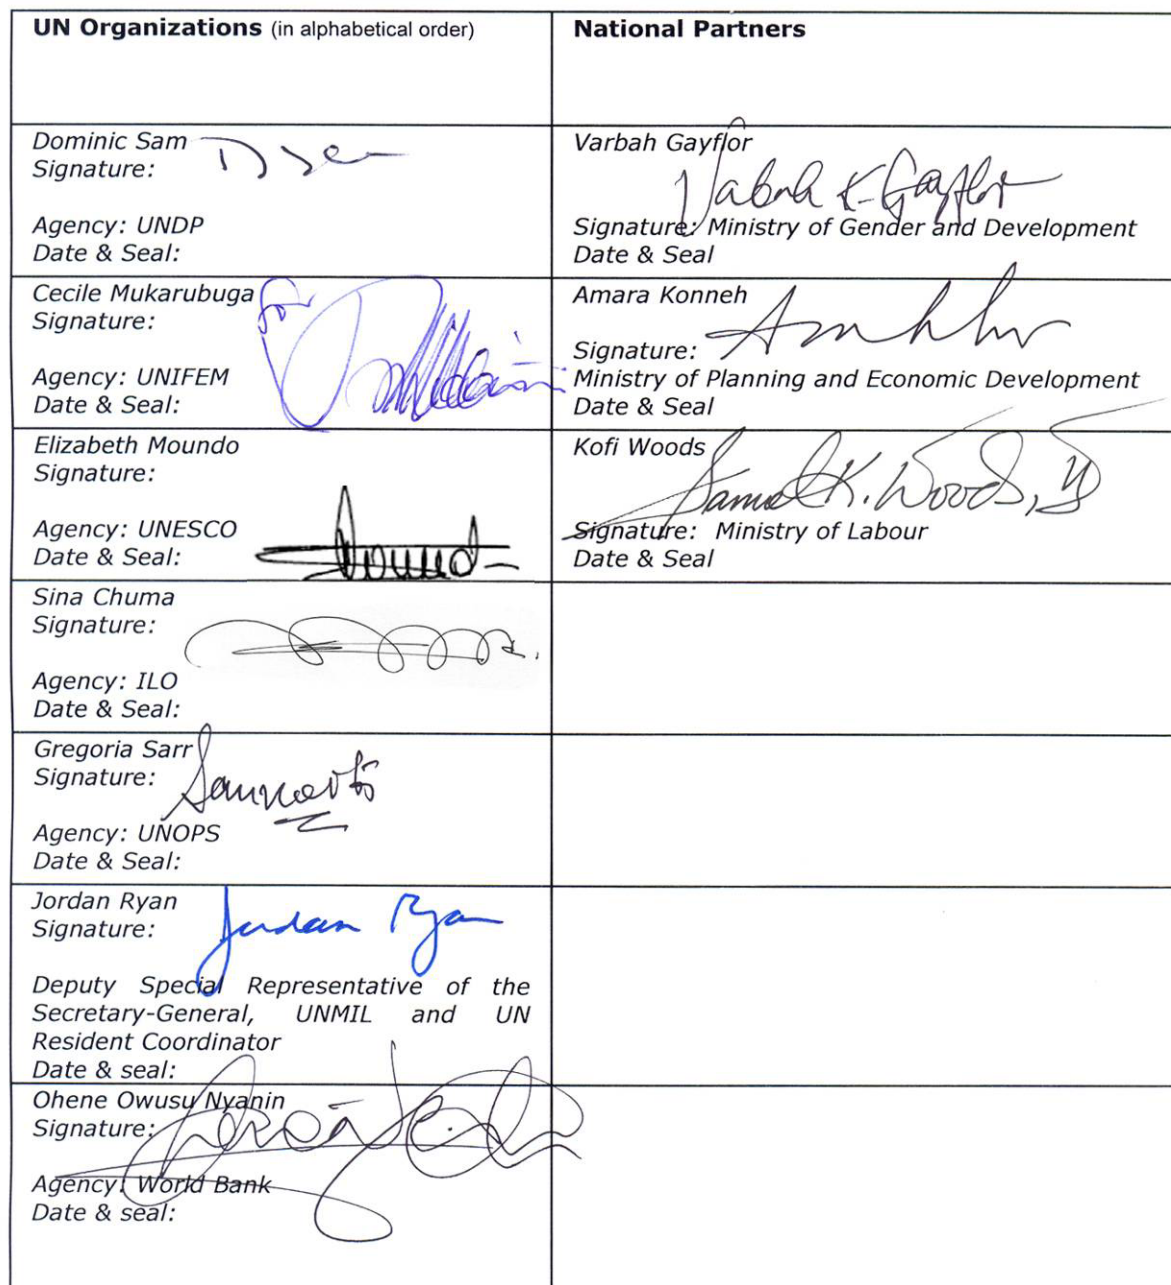 UN Organizations (in alphabetical order)
National Partners
Dominic Sam
Signature:
Agency: UNDP
Date & Seal:
Varbah Gayflor
Vabah K. Gayflor
Signature: Ministry of Gender and Development
Date & Seal
Cecile Mukarubuga
Signature:
for
Agency: UNIFEM
Date & Seal:
Amara Konneh
Signature:
Ministry of Planning and Economic Development
Date & Seal
Elizabeth Moundo
Signature:
Agency: UNESCO
Date & Seal:
Kofi Woods
Samuel K. Woods, II
Signature: Ministry of Labour
Date & Seal
Sina Chuma
Signature:
Agency: ILO
Date & Seal:
Gregoria Sarr
Signature:
Agency: UNOPS
Date & Seal:
Jordan Ryan
Signature:
Jordan Ryan
Deputy Special Representative of the
Secretary-General, UNMIL and UN
Resident Coordinator
Date & seal:
Ohene Owusu Nyanin
Signature:
Agency: World Bank
Date & seal: